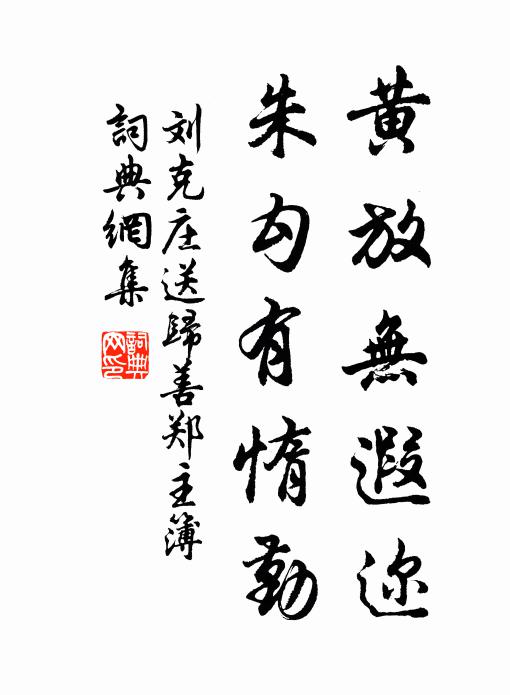 黄放無遐迩
朱勾有惰勤
刘克庄送歸善郑主簿
詞典網集
詞典網印